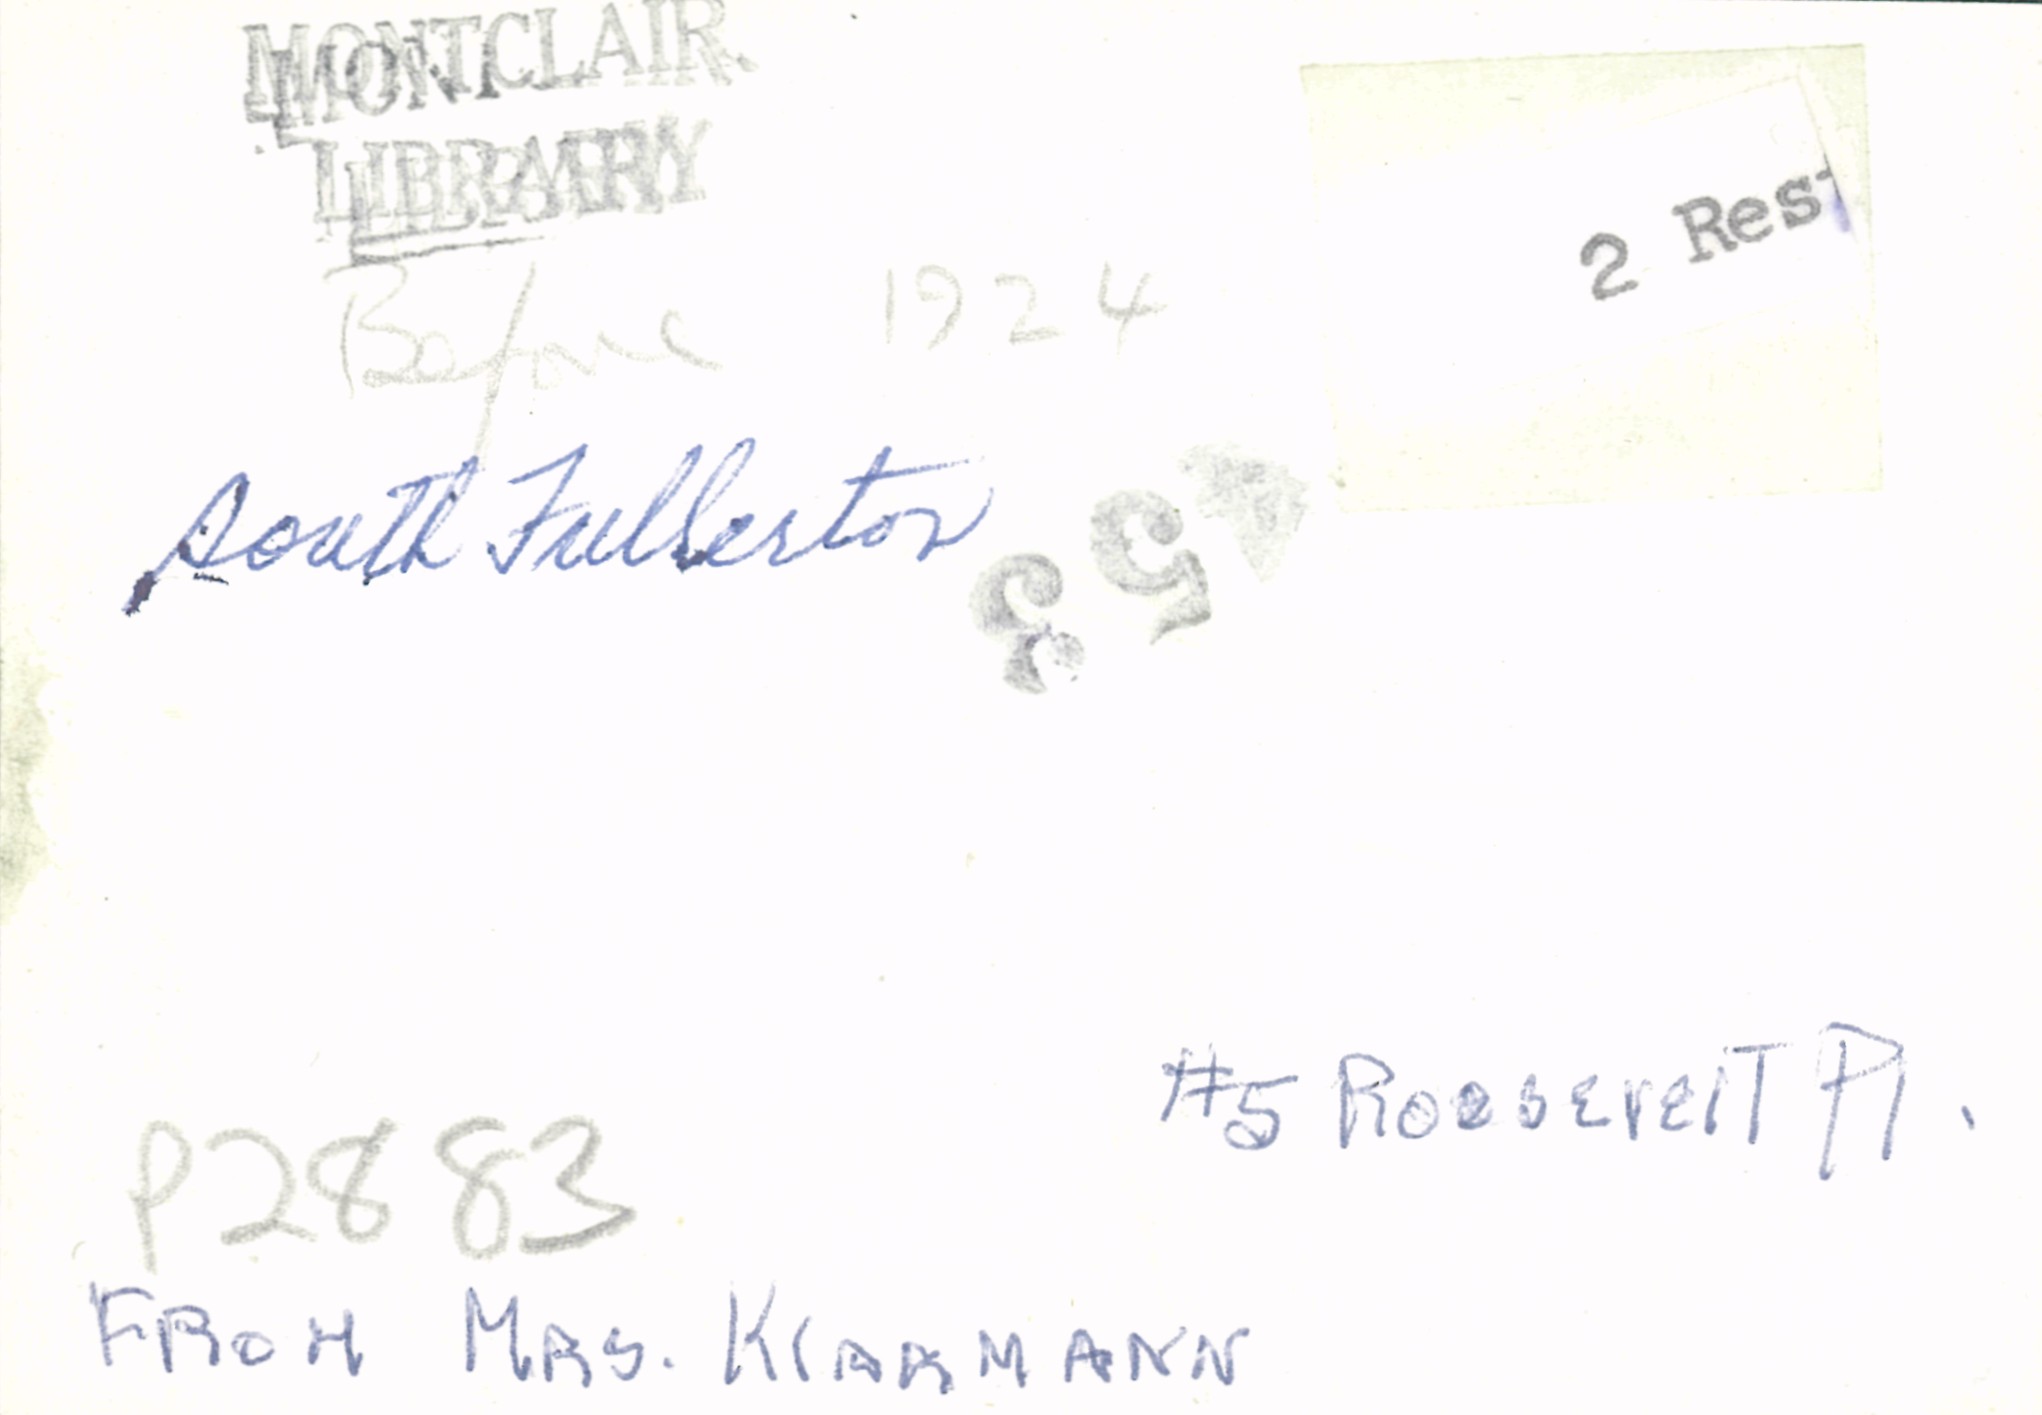 MONTCLAIR
LIBRARY
2 Rest
Before 1924
South Fullerton
53
#5 Roosevelt Pl.
P2883
FROM MRS. KLARMANN